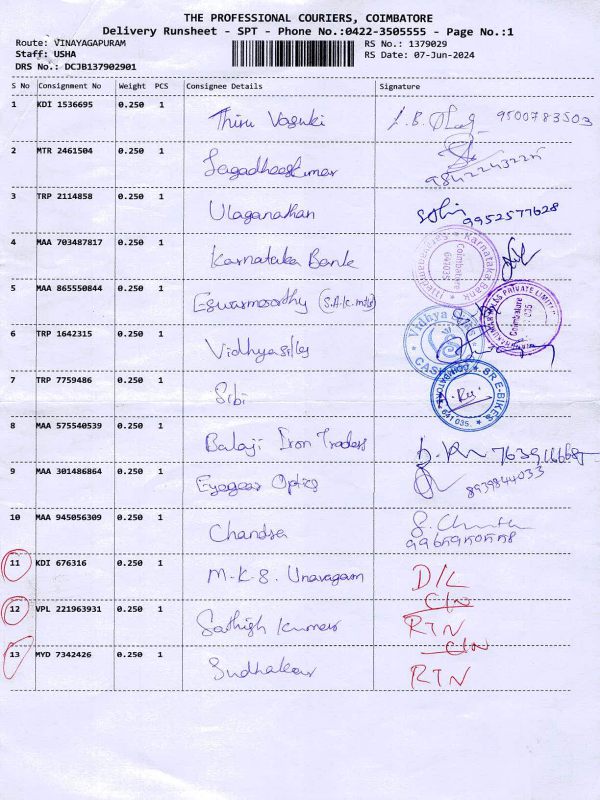 THE PROFESSIONAL COURIERS, COIMBATORE
Delivery Runsheet - SPT - Phone No.:0422-3505555 - Page No.:1
Route: VINAYAGAPURAM RS No.: 1379029
Staff: USHA RS Date: 07-Jun-2024
DRS No.: DCJB137902901
S No Consignment No Weight PCS Consignee Details Signature
1 KDI 1536695 0.250 1 Thiru Vasuki 9500783503
2 MTR 2461504 0.250 1 Jagadheeskumar 9842243225
3 TRP 2114858 0.250 1 Ulaganathan 9952577628
4 MAA 703487817 0.250 1 Karnataka Bank
Karnataka Bank Coimbatore 641035
5 MAA 865550844 0.250 1 Eswarmoorthy (S.A.K. mills)
PRIVATE LIMITED Coimbatore
6 TRP 1642315 0.250 1 Vidhyasilks
Vidhya CASH
7 TRP 7759486 0.250 1 Sibi
SR E-BIKES COIMBATORE - 641 035.
8 MAA 575540539 0.250 1 Balaji Iron Traders
9 MAA 301486864 0.250 1 Eyegear Optics 8939844033
10 MAA 945056309 0.250 1 Chandra
11 KDI 676316 0.250 1 M.K.S. Unavagam D/L
C/N
12 VPL 221963931 0.250 1 Sathish Kumar RTN
C/N
13 MYD 7342426 0.250 1 Sudhakar RTN